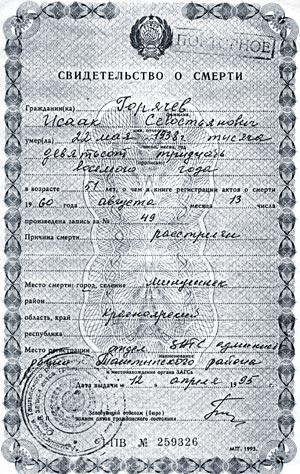 ПОВТОРНОЕ
СВИДЕТЕЛЬСТВО О СМЕРТИ
Гражданин(ка) Горячев
фамилия,
Исаак Севостьянович
имя, отчество
умер(ла) 22 мая 1938г. тысяча
число, месяц, год
девятьсот тридцать
восьмого года
в возрасте 51 лет, о чем в книге регистрации актов о смерти
19 60 года августа месяца 13 числа
произведена запись за № 49
Причина смерти расстрелян
Место смерти: город, селение Минусинск
район
область, край Красноярский
республика
Место регистрации отдел ЗАГС админист
наименование
района
и местонахождение органа ЗАГСа
Дата выдачи 12 апреля 1995 г.
Заведующий отделом (бюро)
записи актов гражданского состояния
I-ПВ № 259326
МПГ. 1993.